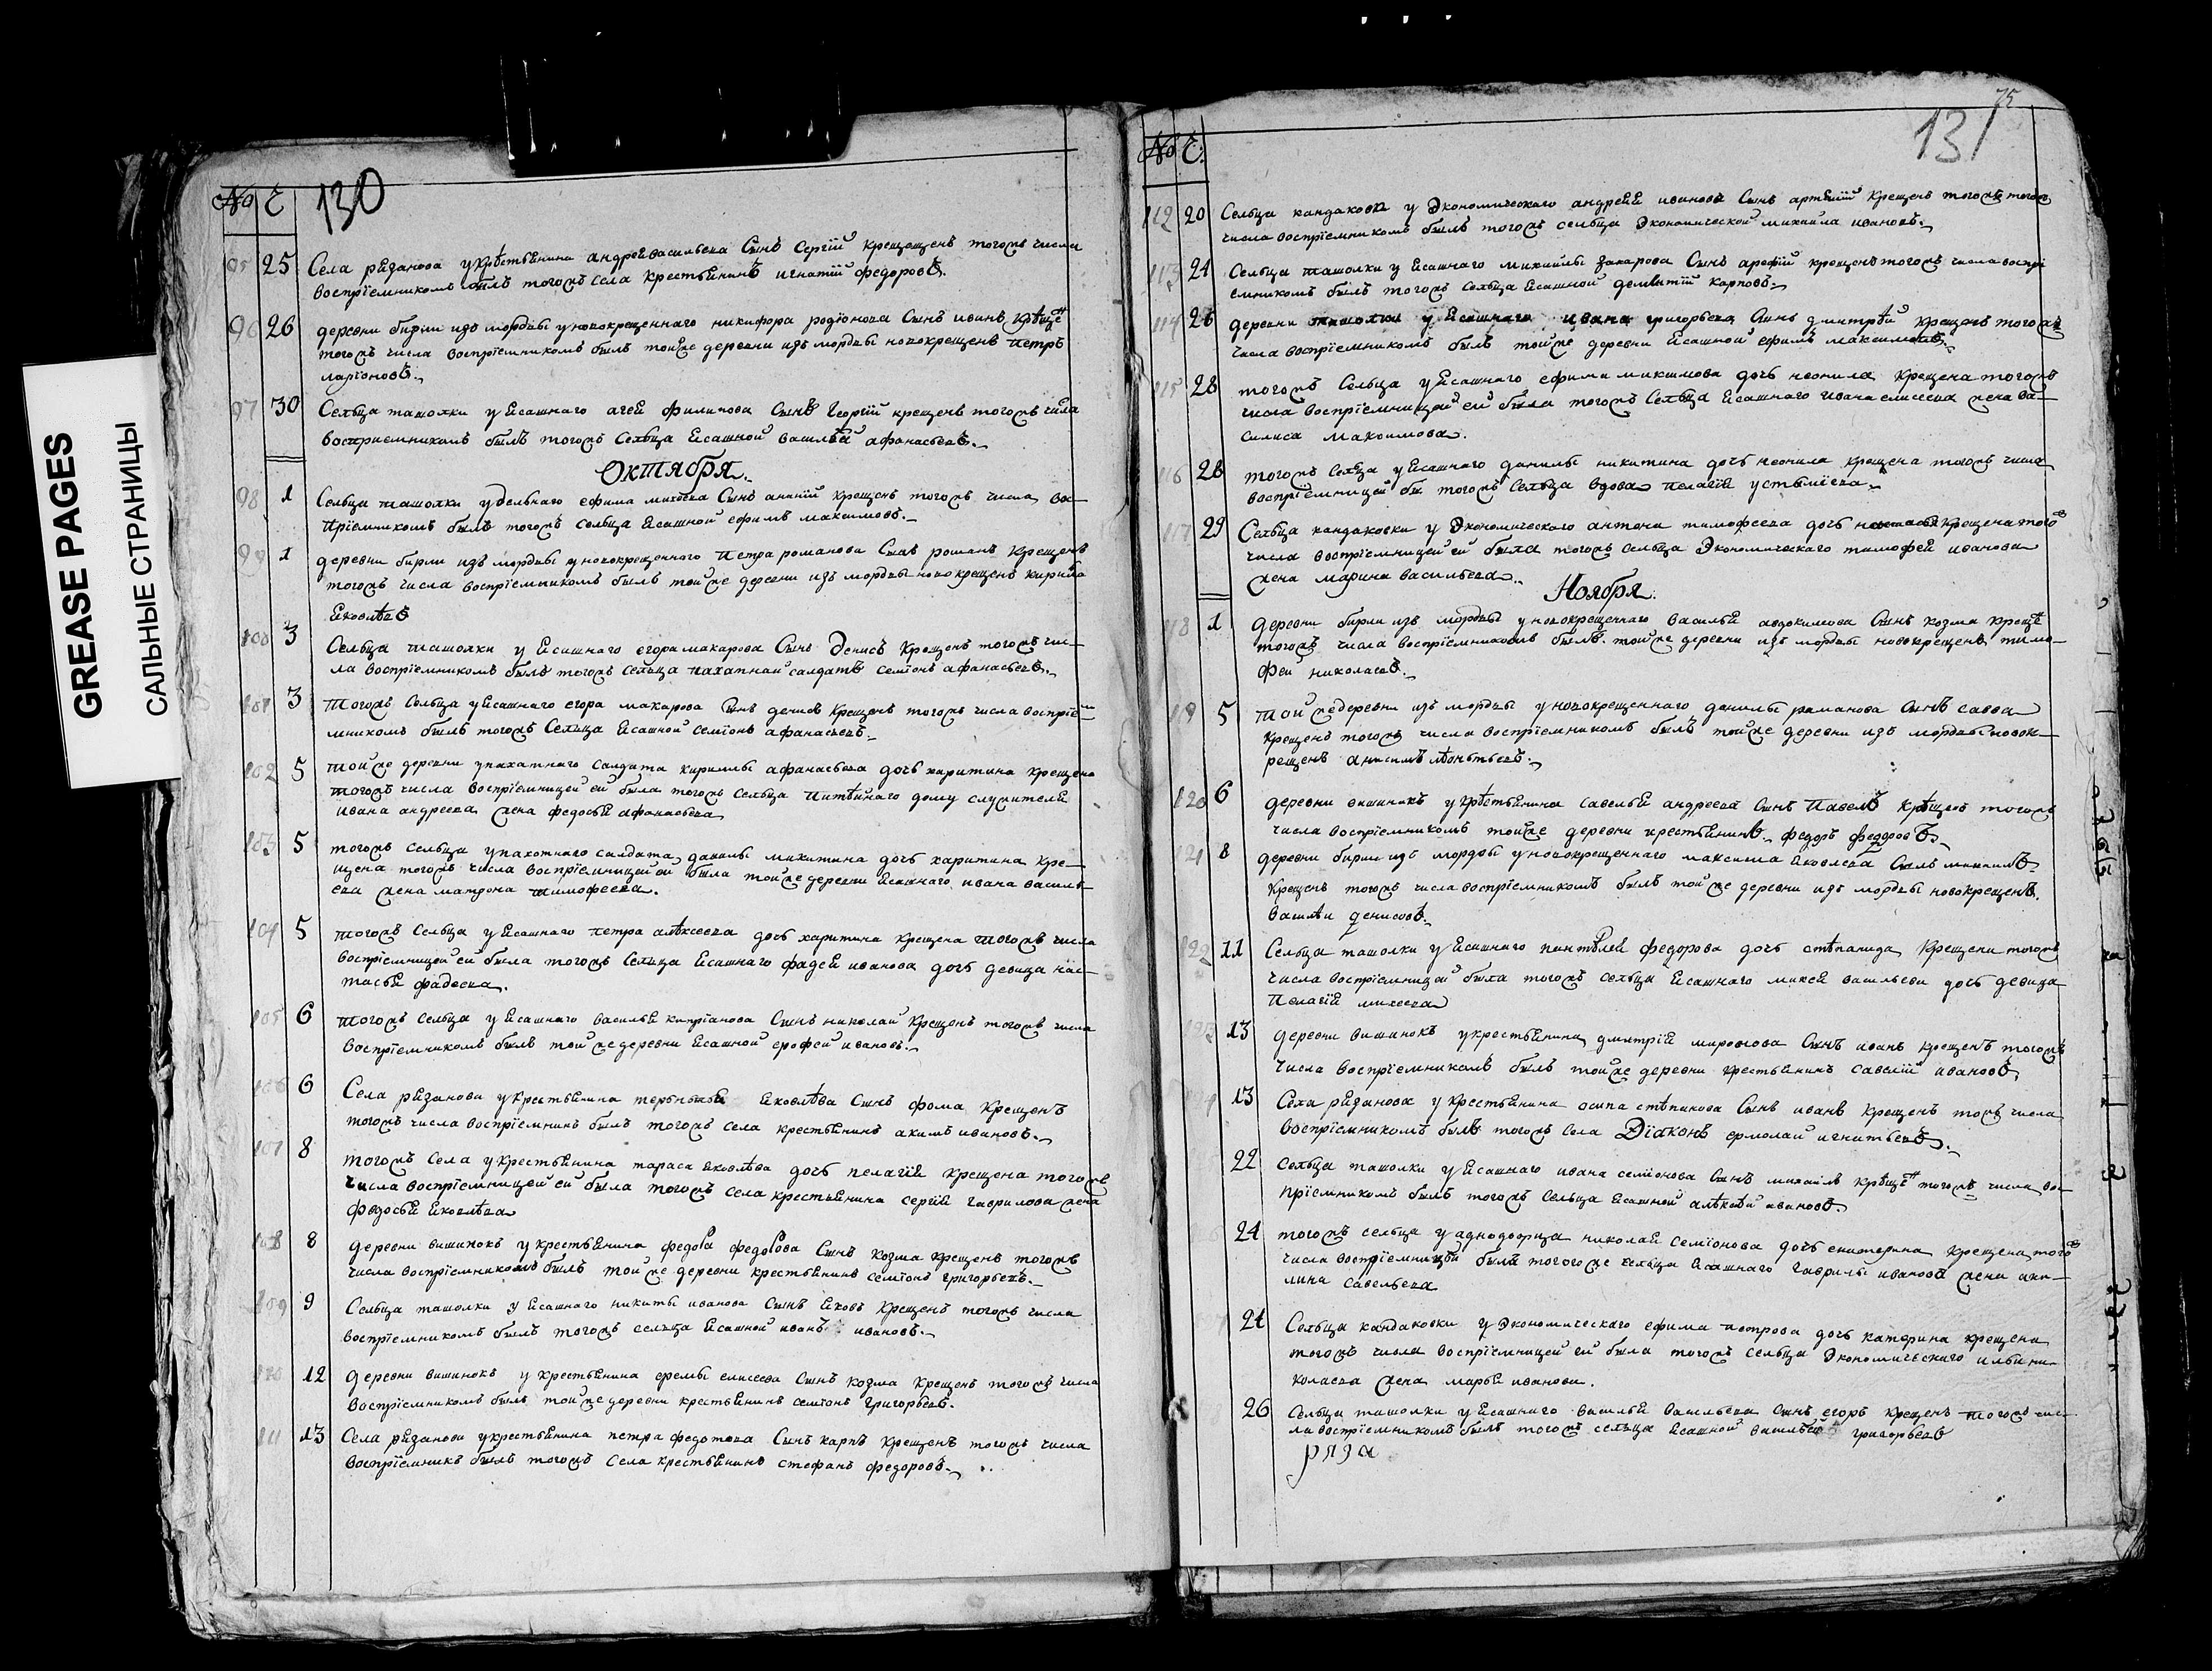 GREASE PAGES
САЛЬНЫЕ СТРАНИЦЫ
№ Ч 130
95 25 Села рязанова у крѣстьянина андрея васильева Сынъ Сергїй крещощенъ тогожъ числа
воспрїемникомъ былъ тогожъ села крестьянинъ игнатїй федоровъ.
96 26 деревни бирли изъ мордвы у новокрещеннаго никифора родїонова Сынъ иванъ крѣще
тогожъ числа воспрїемникомъ былъ тойже деревни изъ мордвы новокрещенъ петръ
ларїоновъ.
97 30 Сельца ташолки у ясашнаго агея филипова Сынъ Георгїй крещенъ тогожъ числа
восприемникомъ былъ тогожъ Сельца ясашной василей афанасьевъ.
Октября
98 1 Сельца ташолки удельнаго ефима михѣева Сынъ ананїй крещенъ тогожъ числа вос
прїемникомъ былъ тогожъ сельца ясашной ефимъ максимовъ.
99 1 деревни бирли изъ мордвы у новокрещенного петра романова Сынъ романъ крещенъ
тогожъ числа воспрїемникомъ былъ тойже деревни изъ мордвы новокрещенъ кирила
яковлѣвъ
100 3 Сельца ташолки у ясашнаго егора макарова Сынъ Денисъ крещенъ тогожъ чис
ла воспрїемникомъ былъ тогожъ сельца пахатнай салдатъ семїонъ афанасьевъ.
101 3 Тогожъ Сельца у ясашнаго егора макарова Сынъ денисъ крещенъ тогожъ числа воспрїе
мникомъ былъ тогожъ Сельца ясашной семїонъ афанасьевъ.
102 5 тойже деревни упахатнаго салдата кириллы афанасьева дочь харитина крещена
тогожъ числа воспрїемницей ей была тогожъ сельца питѣйнаго дому служителя
ивана андреева жена федосья афанасьева
103 5 тогожъ сельца упахотнаго салдата данилы микитина дочь харитина кре
щена тогожъ числа воспрїемницей ей была тойже деревни ясашнаго ивана василь
ева жена матрона тимофеева.
104 5 тогожъ Сельца у ясашнаго петра алѣксеева дочь харитина крещена тогожъ числа
воспрїемницей ей была тогожъ Сельца ясашнаго фадея иванова дочь девица нас
тасья фадеева.
105 6 тогожъ сельца у ясашнаго василья кипрїанова Сынъ николай крещенъ тогожъ числа
воспрїемникомъ былъ тойже деревни ясашной ерофей ивановъ.
106 6 Села рязанова укрестьянина яковлѣва Сынъ фома крещенъ
тогожъ числа воспрїемникъ былъ тогожъ села крестьянинъ акимъ ивановъ.
107 8 тогожъ села у крестьянина тараса яковлѣва дочь пелагїя крещена тогожъ
числа воспрїемницей ей была тогожъ села крестьянина сергїя гаврилова жена
федосья яковлѣва
108 8 деревни вишинокъ у крестьянина федора федорова Сынъ козма крещенъ тогожъ
числа воспрїемникомъ былъ тойже деревни крестьянинъ семїонъ григорьевъ.
109 9 Сельца ташолки у ясашнаго никиты иванова Сынъ яковъ крещенъ тогожъ числа
воспрїемникомъ былъ тогожъ сельца ясашной иванъ ивановъ.
110 12 деревни вишинокъ у крестьянина еремы елисеева Сынъ козма крещенъ тогожъ числа
воспрїемникомъ былъ тойже деревни крестьянинъ семїонъ григорьевъ.
111 13 Села рязанова укрестьянина петра федотова Сынъ карпъ крещенъ тогожъ числа
воспрїемникъ былъ тогожъ села крестьянинъ стефанъ федоровъ.
75
131
№ Ч
112 20 Сельца кандаковки у Экономическаго андрея иванова Сынъ артемїй крещенъ тогожъ тогожъ
числа воспрїемникомъ былъ тогожъ сельца Экономической михайла ивановъ.
113 24 Сельца ташолки у ясашнаго михайлы захарова Сынъ арефїй крещенъ тогожъ числа воспрї
емникомъ былъ тогожъ сельца ясашной карповъ.
114 26 деревни ташолки у ясашнаго ивана григорьева Сынъ дмитрѣй крещенъ тогожъ
числа воспрїемникомъ былъ тойже деревни ясашной ефимъ максимовъ.
115 28 тогожъ Сельца у ясашнаго ефима максимова дочь неонила крещена тогожъ
числа воспрїемницей ей была тогожъ Сельца ясашнаго ивана елисеева жена ва
силиса максимова.
116 28 тогожъ Сельца у ясашнаго данилы никитина дочь неонила крещена тогожъ числа
воспрїемницей бы тогожъ сельца вдова пелагїя
117 29 Сельца кандаковки у Экономическаго антона тимофеева дочь крещена того
числа воспрїемницей ей была тогожъ сельца Экономическаго тимофея иванова
жена марина васильева.
Ноября
118 1 деревни бирли изъ мордвы у новокрещеннаго василья авдокимова Сынъ козма креще
тогожъ числа воспрїемникомъ былъ тойже деревни изъ мордвы новокрещенъ тимо
фей николаевъ.
119 5 тойже деревни изъ мордвы у новокрещеннаго данилы романова Сынъ савва
крещенъ тогожъ числа воспрїемникомъ былъ тойже деревни изъ мордвы новок
рещенъ анисимъ лѣонтьевъ.
120 6 деревни вишинокъ у крѣстьянина савелья андреева Сынъ Павелъ крѣщенъ тогожъ
числа воспрїемникомъ тойже деревни крестьянинъ федоръ федоровъ
121 8 деревни бирли изъ мордвы у новокрещеннаго максима яковлева Сынъ михаилъ
крещенъ тогожъ числа воспрїемникомъ былъ тойже деревни изъ мордвы новокрещенъ
василѣи денисовъ.
122 11 Сельца ташолки у ясашнаго пантѣлея федорова дочь стѣпанида крещена тогожъ
числа воспрїемницей была тогожъ сельца ясашнаго михея васильева дочь девица
Пелагїя михеева
123 13 деревни вишинокъ укрестьянина дмитрїя миронова Сынъ иванъ крещенъ тогожъ
числа воспрїемникомъ былъ тойже деревни крестьянинъ савелїй ивановъ
13 Села рязанова у крестьянина осипа стѣпанова Сынъ иванъ крещенъ тожъ числа
воспрїемникомъ былъ тогожъ села Дїаконъ ермолай игнатьевъ.
22 Сельца ташолки у ясашнаго ивана семїонова Сынъ михаилъ крѣще тогожъ числа вос
прїемникомъ былъ тогожъ сельца ясашной алѣксѣй ивановъ.
24 тогожъ сельца у аднодворца николая семїонова дочь екатерина крещена того
числа воспрїемницей была тогоже сельца ясашнаго гаврилы иванова жена аку
лина савельева
24 Сельца кандаковки у Экономическаго ефима петрова дочь катерина крещена
тогожъ числа воспрїемницей ей была тогожъ сельца Экономическаго ильи ни
колаева жена марья иванова.
26 Сельца ташолки у ясашнаго василья васильева Сынъ егоръ крещенъ тогожъ чис
ла воспрїемникомъ былъ тогожъ сельца ясашной василей григорьевъ
ряза